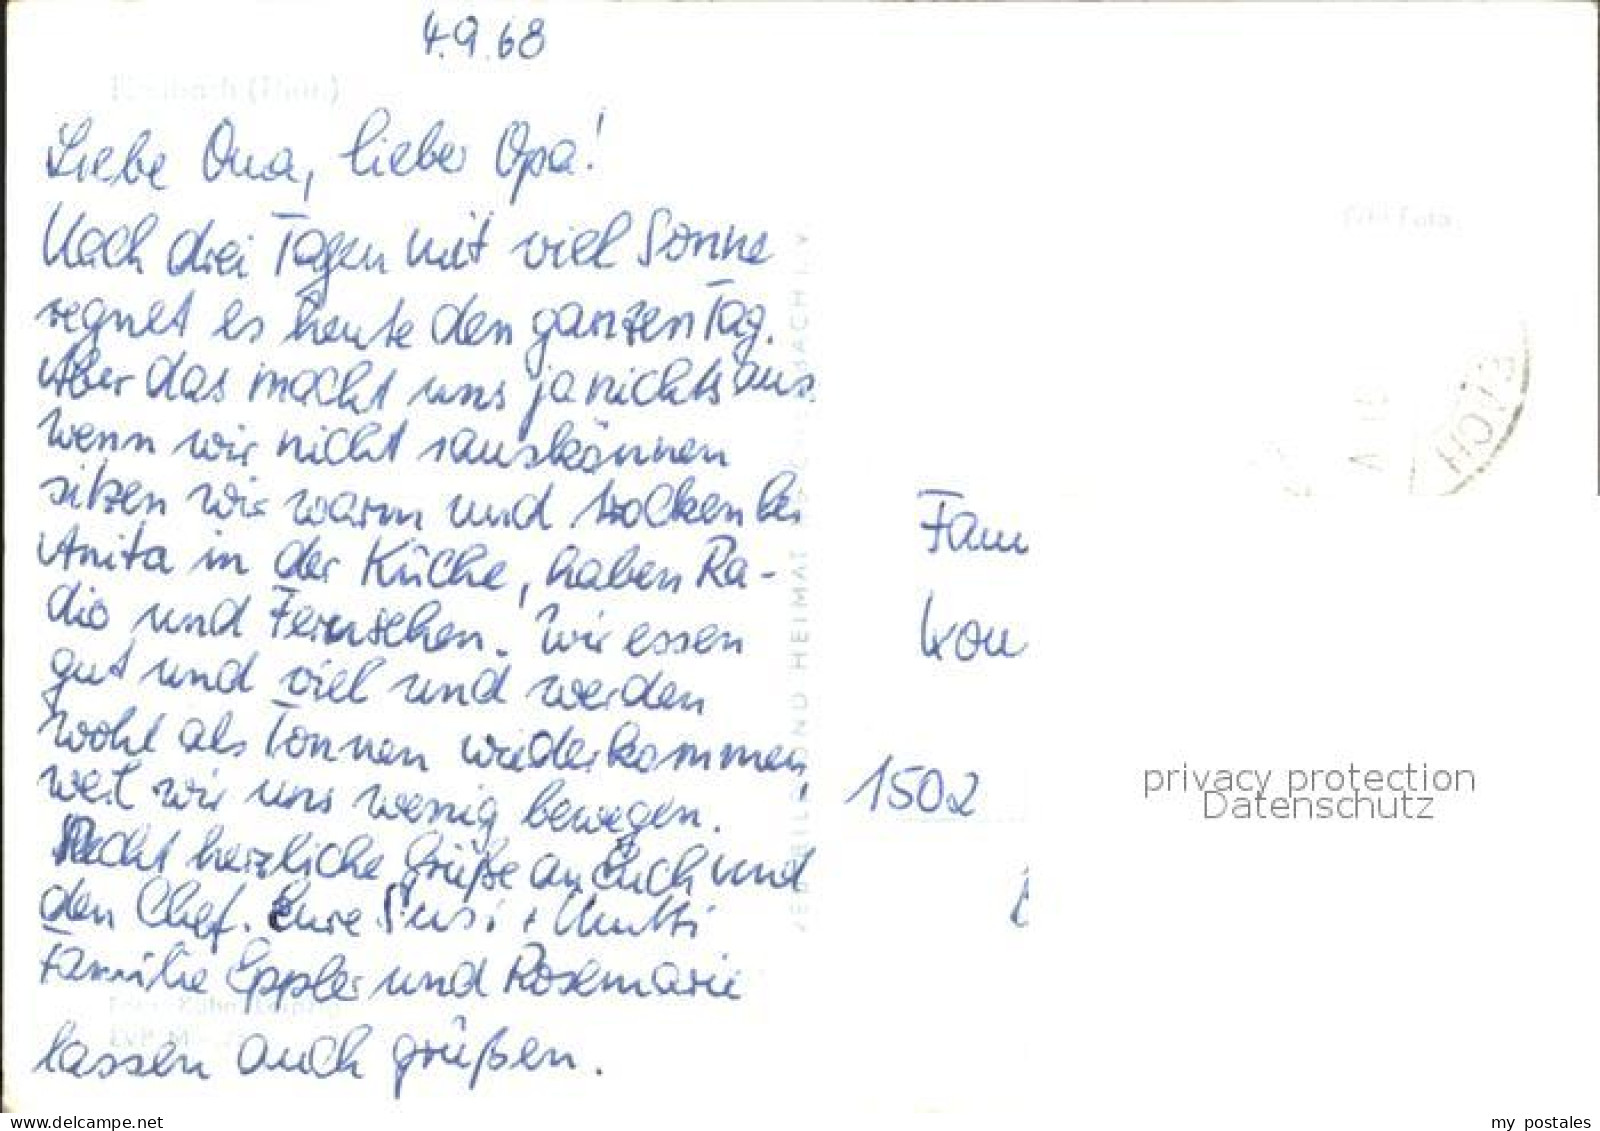 4.9.68
Liebe Oma, lieber Opa!
Nach drei Tagen mit viel Sonne
regnet es heute den ganzen Tag.
Aber das macht uns ja nichts aus
wenn wir nicht rauskönnen
sitzen wir warm und trocken bei
Anita in der Küche, haben Ra-
dio und Fernsehen. Wir essen
gut und viel und werden
wohl als Tonnen wiederkommen,
weil wir uns wenig bewegen.
Recht herzliche Grüße an Euch und
den Chef. Eure Susi + Mutti
Familie Eppler und Rosemarie
lassen auch grüßen.
VERBILD UND HEIMAT
Fam
1502
privacy protection
Datenschutz
delcampe.net
my_postales